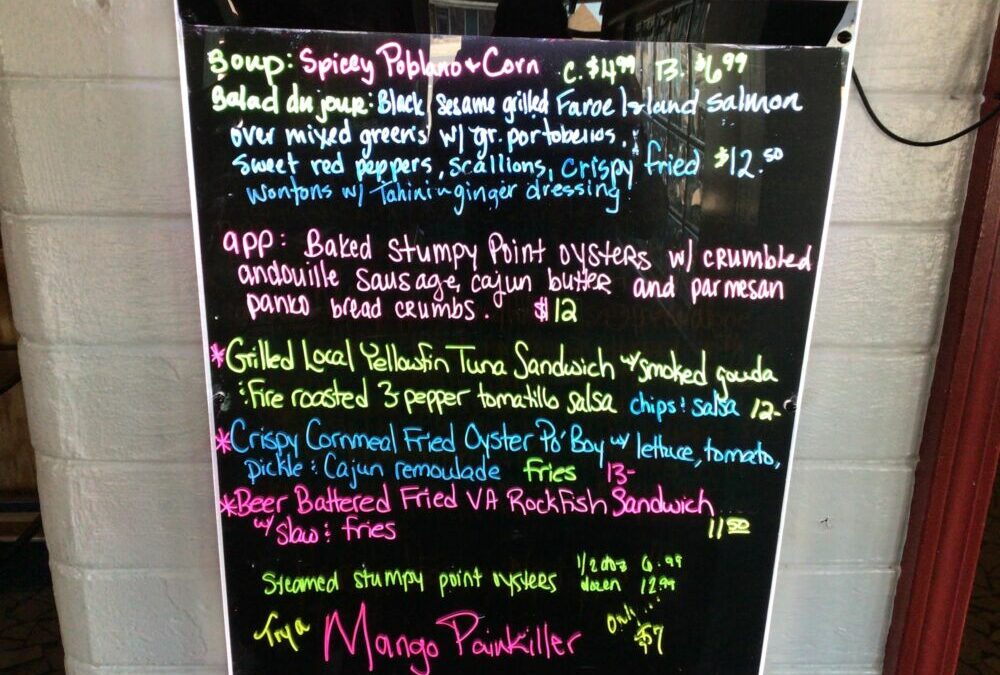 Soup: Spicey Poblano + Corn C. $4.99 B. $6.99
Salad du jour: Black sesame grilled Faroe Island salmon
over mixed greens w/ gr. portobellos,
sweet red peppers, scallions, crispy fried $12.50
wontons w/ Tahini-ginger dressing
app: Baked Stumpy Point oysters w/ crumbled
andouille sausage, cajun butter and parmesan
panko bread crumbs. $12
*Grilled Local Yellowfin Tuna Sandwich w/ smoked gouda
: Fire roasted 3 pepper tomatillo salsa chips : salsa 12-
*Crispy Cornmeal Fried Oyster Po'Boy w/ lettuce, tomato,
pickle : Cajun remoulade fries 13-
*Beer Battered Fried VA Rockfish Sandwich
w/ slaw : fries 11.50
Steamed stumpy point oysters 1/2 doz 6.99
dozen 12.99
Try a Mango Painkiller Only... $7